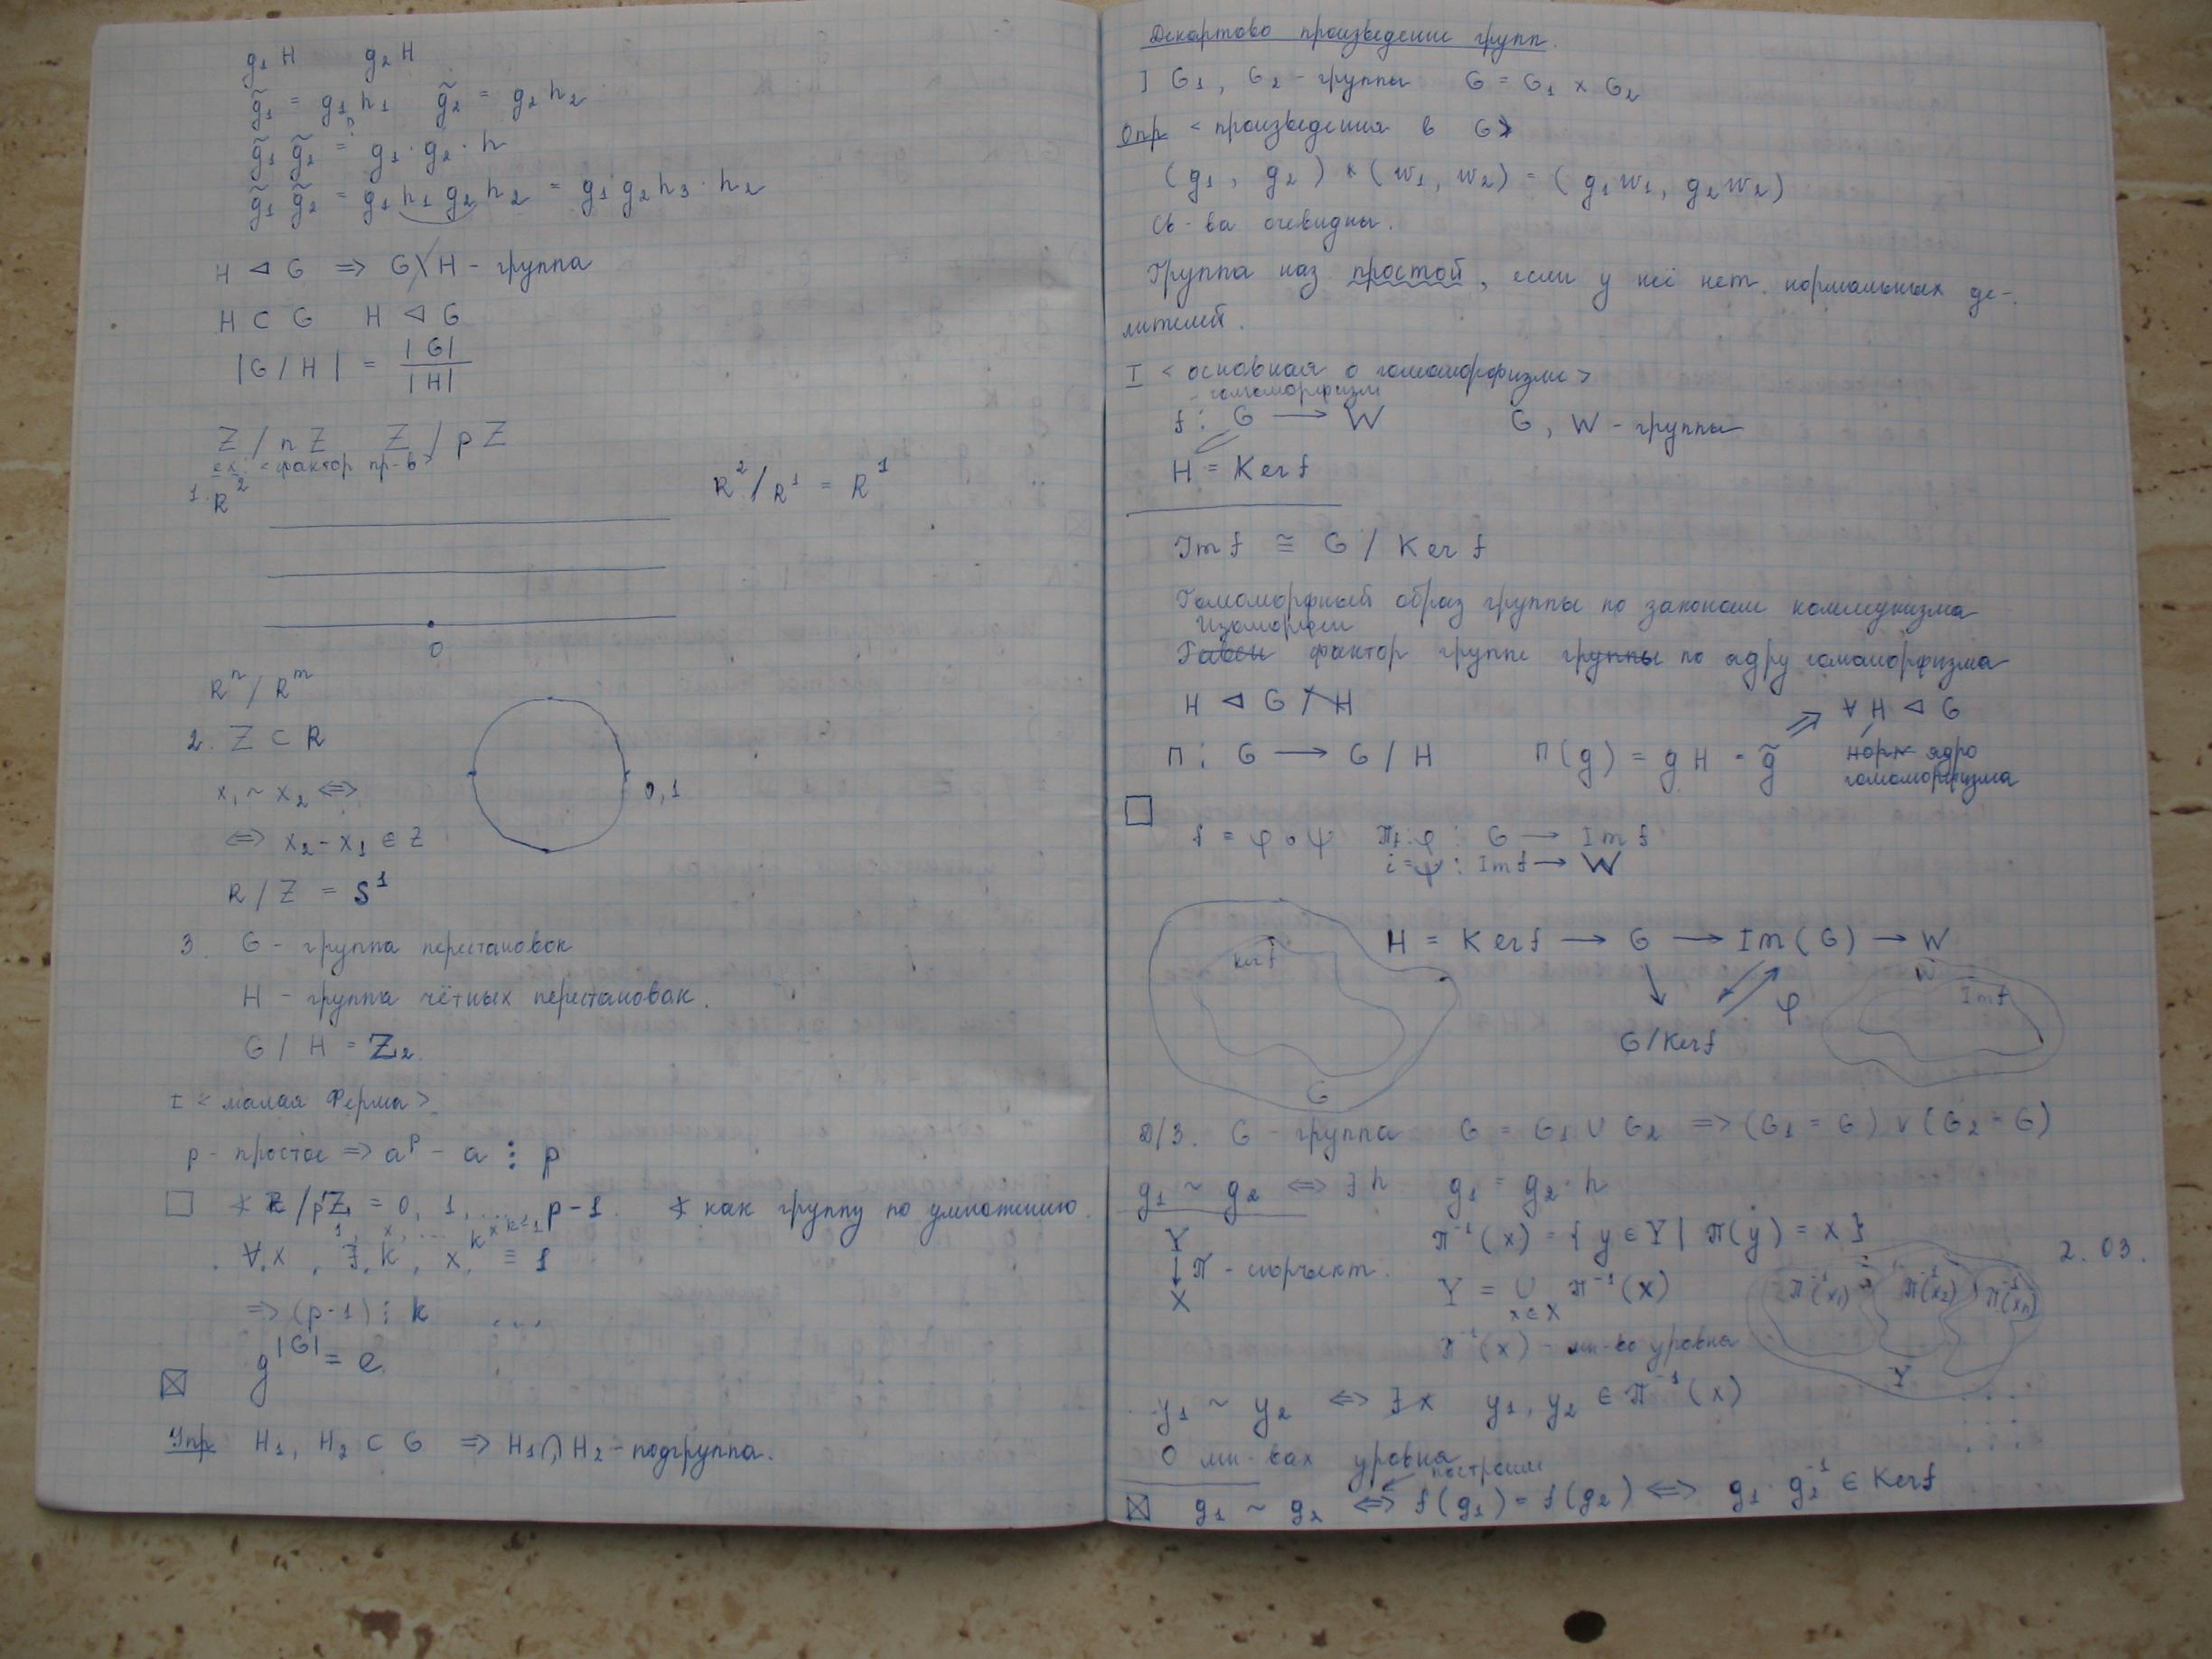 g₁ H g₂ H
g̃₁ = g₁ h₁ g̃₂ = g₂ h₂
g̃₁ g̃₂ =? g₁ · g₂ · h
g̃₁ g̃₂ = g₁ h₁ g₂ h₂ = g₁ g₂ h₃ · h₂
H ⊲ G ⇒ G \ H - группа
H ⊂ G H ⊲ G
|G / H| = |G| / |H|
Z / nZ Z / pZ
ex: < фактор пр-в >
1. R² R² / R¹ = R¹
0
Rⁿ / Rᵐ
2. Z ⊂ R
x₁ ~ x₂ ⇔
0, 1
⇔ x₂ - x₁ ∈ Z
R / Z = S¹
3. G - группа перестановок
H - группа чётных перестановок.
G / H = Z₂
T < малая Ферма >
p - простое ⇒ aᵖ - a ⋮ p
□ ∢ Z / pZ = 0, 1, ..., p-1. ∢ как группу по умножению.
1, x, ...
∀x, ∃k, xᵏ ≡ 1
⇒ (p-1) ⋮ k ...
g^|G| = e
⊠
Упр H₁, H₂ ⊂ G ⇒ H₁ ∩ H₂ - подгруппа.
Декартово произведение групп.
] G₁, G₂ - группы G = G₁ × G₂
Опр < произведения в G >
(g₁, g₂) * (w₁, w₂) = (g₁w₁, g₂w₂)
Св-ва очевидны.
Группа наз простой, если у неё нет нормальных де-
лителей.
T < основная о гомоморфизме >
- гомоморфизм
f : G → W G, W - группы
H = Ker f
Im f ≅ G / Ker f
Гомоморфный образ группы по законам коммунизма
Изоморфен
фактор группе группы по ядру гомоморфизма
H ⊲ G / H ⇒ ∀ H ⊲ G
П : G → G / H П(g) = gH = g̃ норм ядро
гомоморфизма
□
f = φ ∘ ψ π₁=φ : G → Im f
i=ψ : Im f → W
H = Ker f → G → Im(G) → W
Ker f
G
φ
G/Ker f
W
Im f
Д/З. G - группа G = G₁ ∪ G₂ ⇒ (G₁ = G) ∨ (G₂ = G)
g₁ ~ g₂ ⇔ ∃ h g₁ = g₂ · h
Y
↓ π - сюръект.
X
π⁻¹(x) = { y ∈ Y | π(y) = x }
2.03.
Y = ∪ π⁻¹(x)
x∈X
π⁻¹(x₁) π⁻¹(x₂) π⁻¹(xₙ)
Y
π⁻¹(x) - мн-во уровня
y₁ ~ y₂ ⇔ ∃ x y₁, y₂ ∈ π⁻¹(x)
О мн-вах уровня
построим
⊠ g₁ ~ g₂ ⇔ f(g₁) = f(g₂) ⇔ g₁ · g₂⁻¹ ∈ Ker f